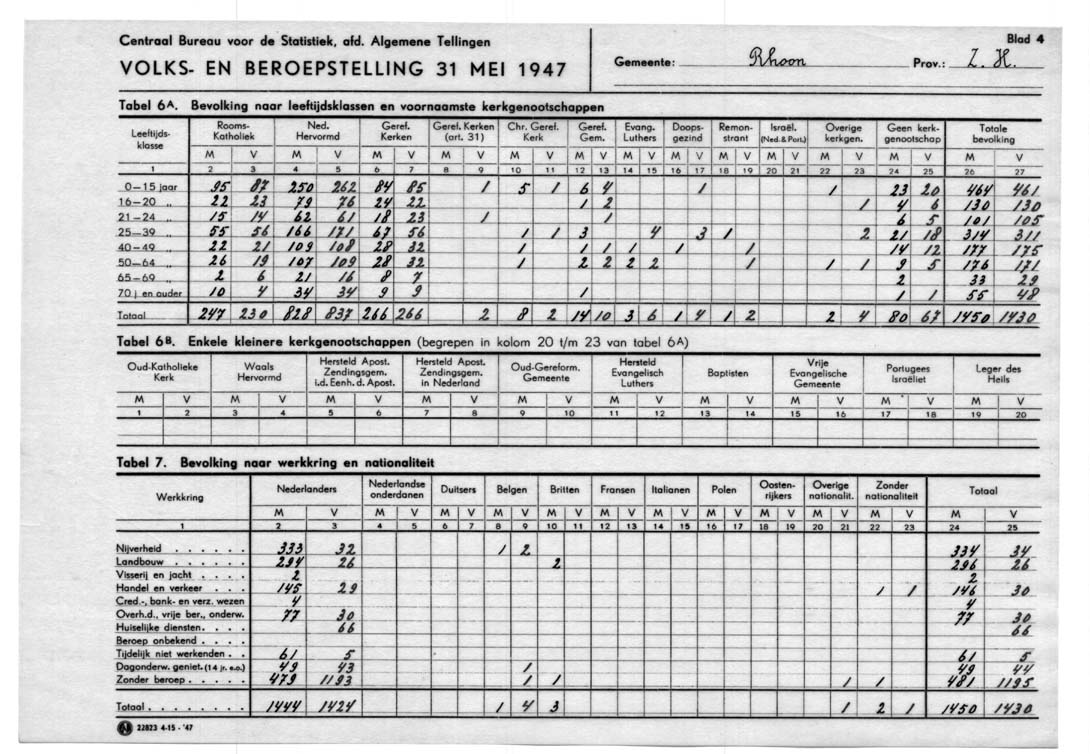 Centraal Bureau voor de Statistiek, afd. Algemene Tellingen
VOLKS- EN BEROEPSTELLING 31 MEI 1947
Gemeente: Rhoon Prov.: Z. H.
Blad 4
Tabel 6A. Bevolking naar leeftijdsklassen en voornaamste kerkgenootschappen
Leeftijds-klasse | Rooms-Katholiek | Ned. Hervormd | Geref. Kerken | Geref. Kerken (art. 31) | Chr. Geref. Kerk | Geref. Gem. | Evang. Luthers | Doops-gezind | Remon-strant | Israël. (Ned. & Port.) | Overige kerkgen. | Geen kerk-genootschap | Totale bevolking
M V M V M V M V M V M V M V M V M V M V M V M V M V
1 2 3 4 5 6 7 8 9 10 11 12 13 14 15 16 17 18 19 20 21 22 23 24 25 26 27
0—15 jaar 95 87 250 262 84 85 1 5 1 6 4 1 1 23 20 464 461
16—20 „ 22 23 79 76 24 22 1 2 1 4 6 130 130
21—24 „ 15 14 62 61 18 23 1 1 6 5 101 105
25—39 „ 55 56 166 171 67 56 1 1 3 4 3 1 2 21 18 314 311
40—49 „ 22 21 109 108 28 32 1 1 1 1 1 1 1 14 12 177 175
50—64 „ 26 19 107 109 28 32 1 2 2 2 2 1 1 1 9 5 176 171
65—69 „ 2 6 21 16 8 7 2 33 29
70 j en ouder 10 4 34 34 9 9 1 1 1 55 48
Totaal 247 230 828 837 266 266 2 8 2 14 10 3 6 1 4 1 2 2 4 80 67 1450 1430
Tabel 6B. Enkele kleinere kerkgenootschappen (begrepen in kolom 20 t/m 23 van tabel 6A)
Oud-Katholieke Kerk | Waals Hervormd | Hersteld Apost. Zendingsgem. i.d. Eenh. d. Apost. | Hersteld Apost. Zendingsgem. in Nederland | Oud-Gereform. Gemeente | Hersteld Evangelisch Luthers | Baptisten | Vrije Evangelische Gemeente | Portugees Israëliet | Leger des Heils
M V M V M V M V M V M V M V M V M V M V
1 2 3 4 5 6 7 8 9 10 11 12 13 14 15 16 17 18 19 20
Tabel 7. Bevolking naar werkkring en nationaliteit
Werkkring | Nederlanders | Nederlandse onderdanen | Duitsers | Belgen | Britten | Fransen | Italianen | Polen | Oosten-rijkers | Overige nationalit. | Zonder nationaliteit | Totaal
M V M V M V M V M V M V M V M V M V M V M V M V
1 2 3 4 5 6 7 8 9 10 11 12 13 14 15 16 17 18 19 20 21 22 23 24 25
Nijverheid . . . . . . 333 32 1 2 334 34
Landbouw . . . . . . 294 26 2 296 26
Visserij en jacht . . . . 2 2
Handel en verkeer . . . 145 29 1 1 146 30
Cred.-, bank- en verz. wezen 4 4
Overh.d., vrije ber., onderw. 77 30 77 30
Huiselijke diensten. . . . 66 66
Beroep onbekend . . . .
Tijdelijk niet werkenden . . 61 5 61 5
Dagonderw. geniet. (14 jr. e.o.) 49 43 1 49 44
Zonder beroep . . . . . 479 1193 1 1 1 1 481 1195
Totaal . . . . . . . . 1444 1424 1 4 3 1 2 1 1450 1430
N 22823 4-15 - '47